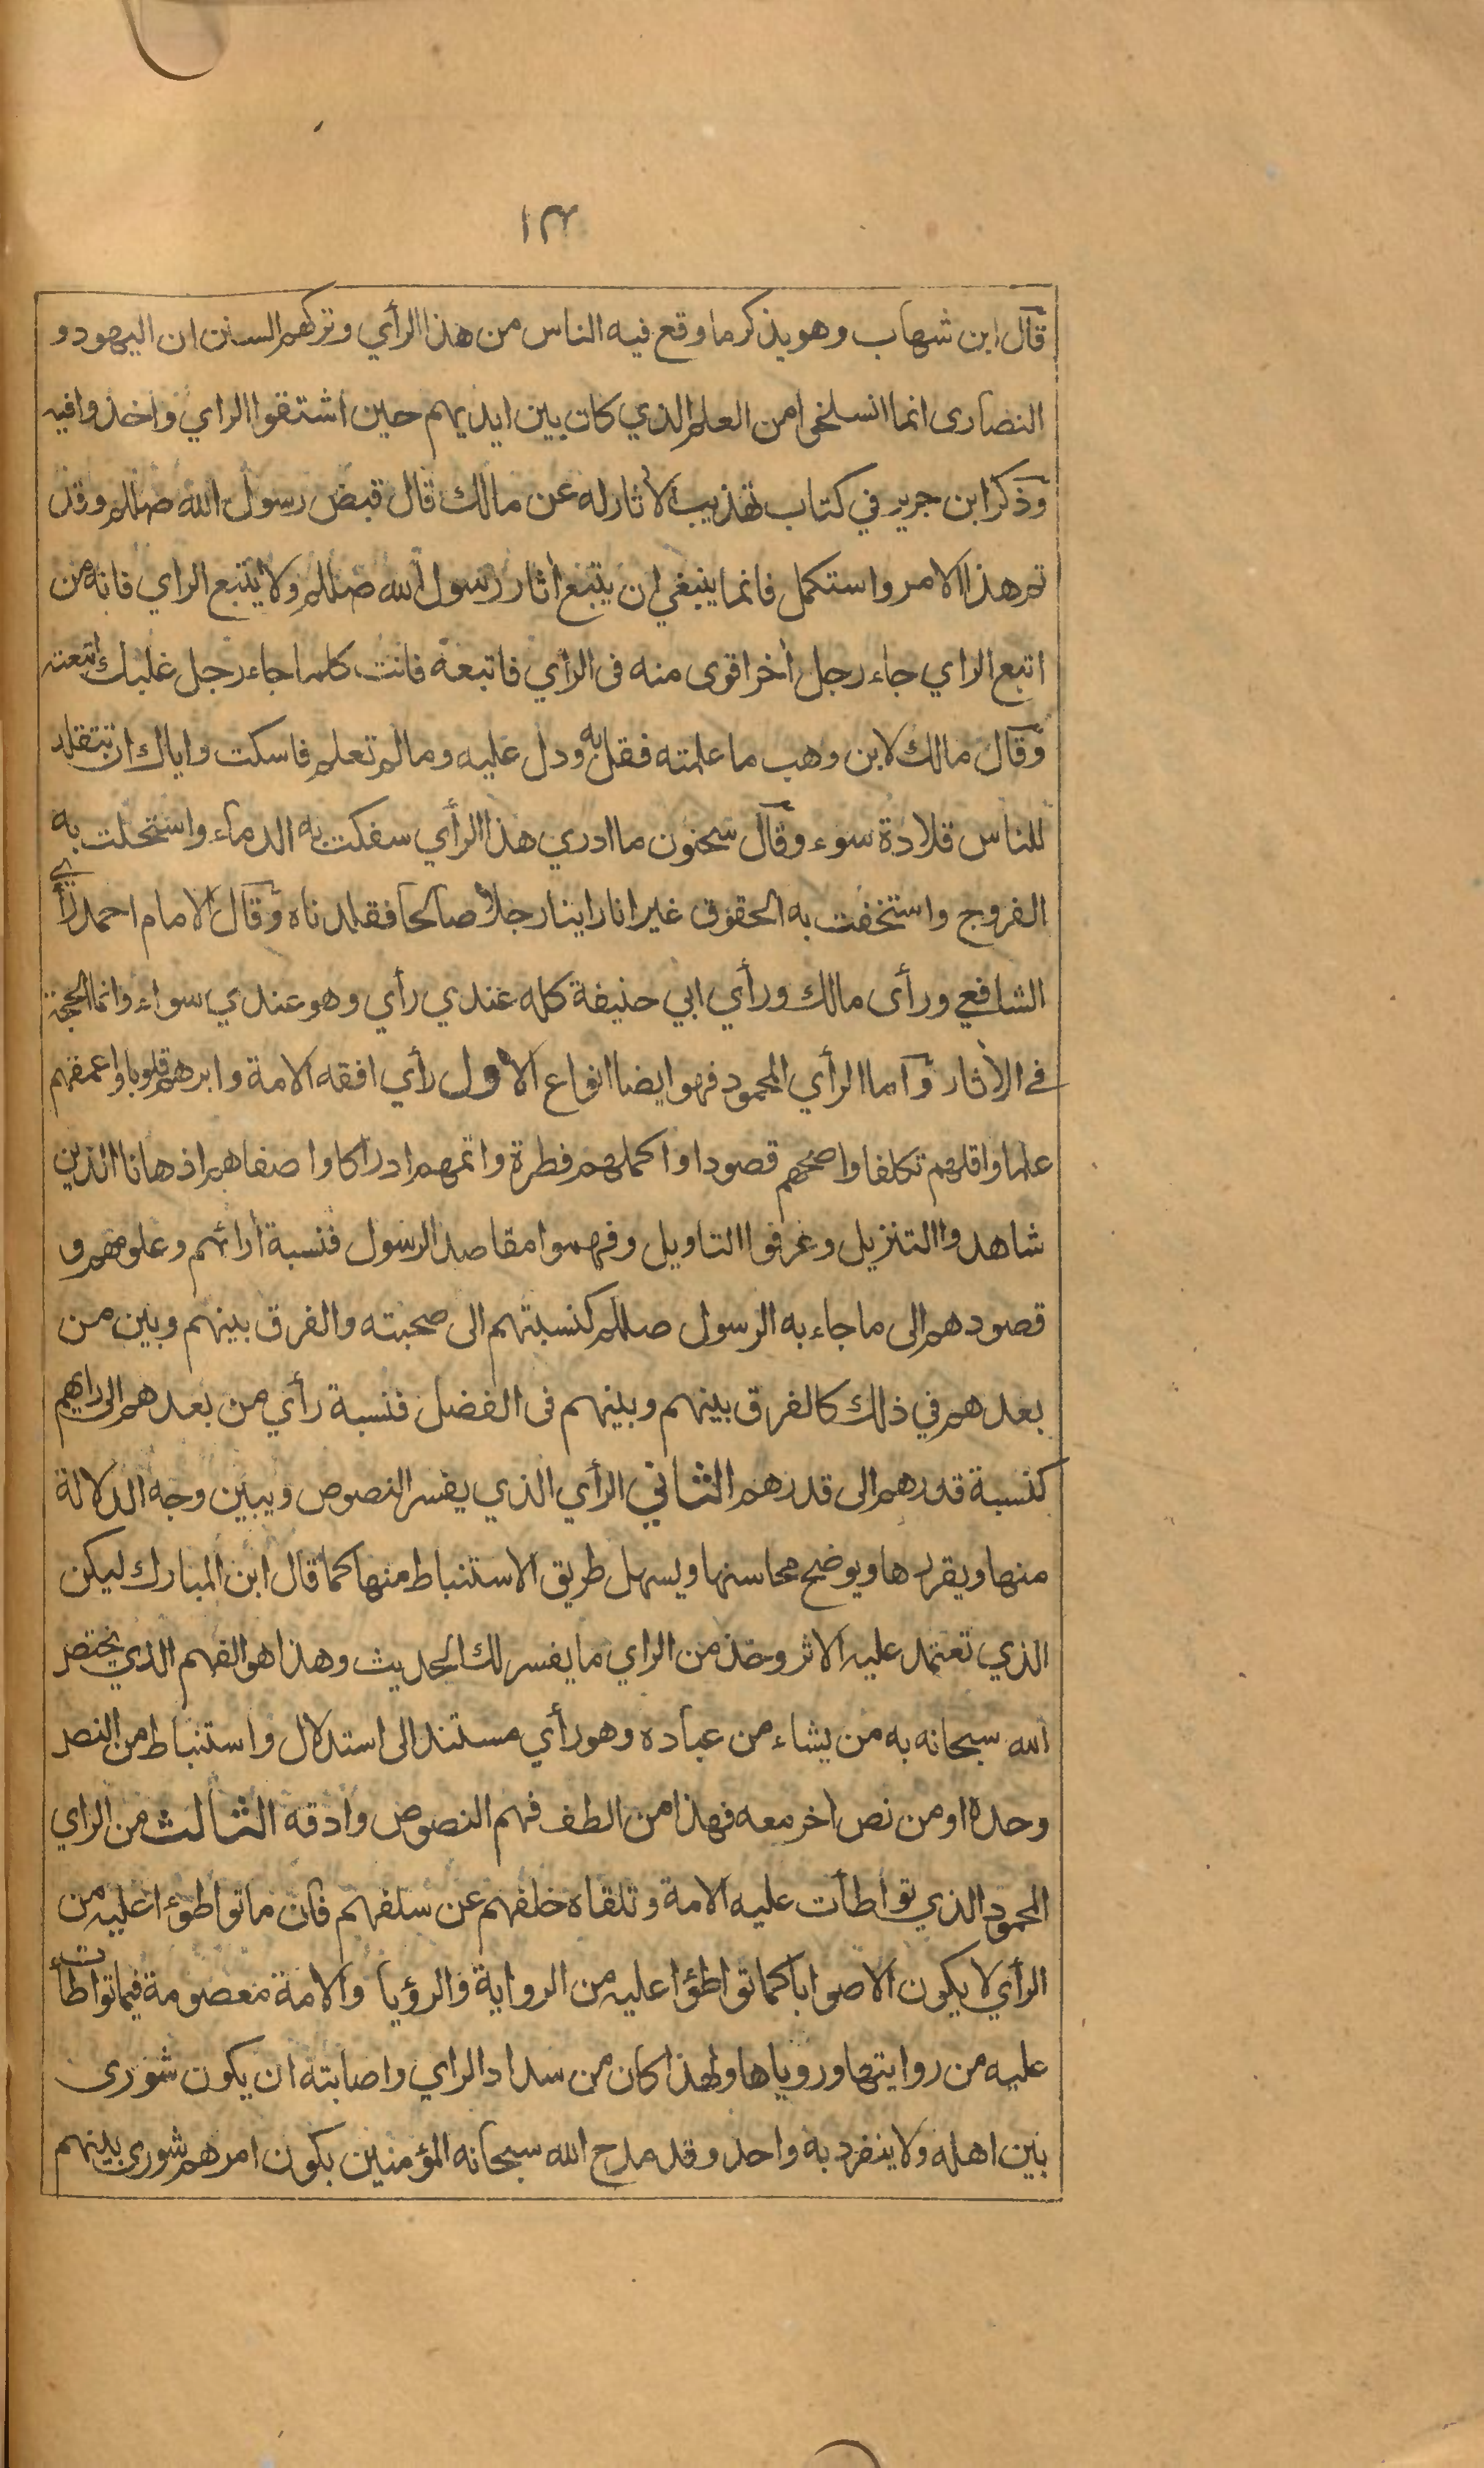 ١٣
قال ابن شهاب وهو يذكر ما وقع فيه الناس من هذا الرأي وتركهم السنن ان اليهود و
النصارى انما انسلخوا من العلم الذي كان بين ايديهم حين اشتقوا الراي واخذوا فيه
وذكر ابن جرير في كتاب تهذيب الآثار له عن مالك قال قبض رسول الله صللم وقد
تم هذا الامر واستكمل فانما ينبغي ان يتبع آثار رسول الله صللم ولا يتبع الراي فانه من
اتبع الراي جاء رجل آخر اقوى منه فى الرأي فاتبعه فانت كلما جاء رجل غلبك اتبعته
وقال مالك لابن وهب ما علمته فقل به ودل عليه وما لم تعلم فاسكت واياك ان تتقلد
للناس قلادة سوء وقال سحنون ما ادري هذا الرأي سفكت به الدماء واستحلت به
الفروج واستخفت به الحقوق غير انا راينا رجلا صالحا فقلدناه وقال الامام احمد رأي
الشافعي ورأى مالك ورأي ابي حنيفة كله عندي رأي وهو عندي سواء وانما الحجة
في الآثار وأما الرأي المحمود فهو ايضا انواع الأول رأي افقه الامة وابرهم قلوبا واعمقهم
علما واقلهم تكلفا واصحهم قصودا واكملهم فطرة واتمهم ادراكا واصفاهم اذهانا الذين
شاهدوا التنزيل وعرفوا التاويل وفهموا مقاصد الرسول فنسبة أرائهم وعلومهم و
قصودهم الى ما جاء به الرسول صللم كنسبتهم الى صحبته والفرق بينهم وبين من
بعدهم في ذلك كالفرق بينهم وبينهم فى الفضل فنسبة رأي من بعدهم الى رايهم
كنسبة قدرهم الى قدرهم الثاني الرأي الذي يفسر النصوص ويبين وجه الدلالة
منها ويقررها ويوضح محاسنها ويسهل طريق الاستنباط منها كما قال ابن المبارك ليكن
الذي تعتمد عليه الاثر وخذ من الراي ما يفسر لك الحديث وهذا هو الفهم الذي يختص
الله سبحانه به من يشاء من عباده وهو رأي مستند الى استدلال واستنباط من النص
وحده او من نص اخر معه فهذا من الطف فهم النصوص وادقه الثالث من الراي
المحمود الذي تواطأت عليه الامة وتلقاه خلفهم عن سلفهم فان ما تواطؤا عليه من
الرأي لا يكون الا صوابا كما تواطؤا عليه من الرواية والرؤيا والامة معصومة فيما تواطأت
عليه من روايتها ورويا ها ولهذا كان من سداد الراي واصابته ان يكون شورى
بين اهله ولا ينفرد به واحد وقد مدح الله سبحانه المؤمنين بكون امرهم شورى بينهم